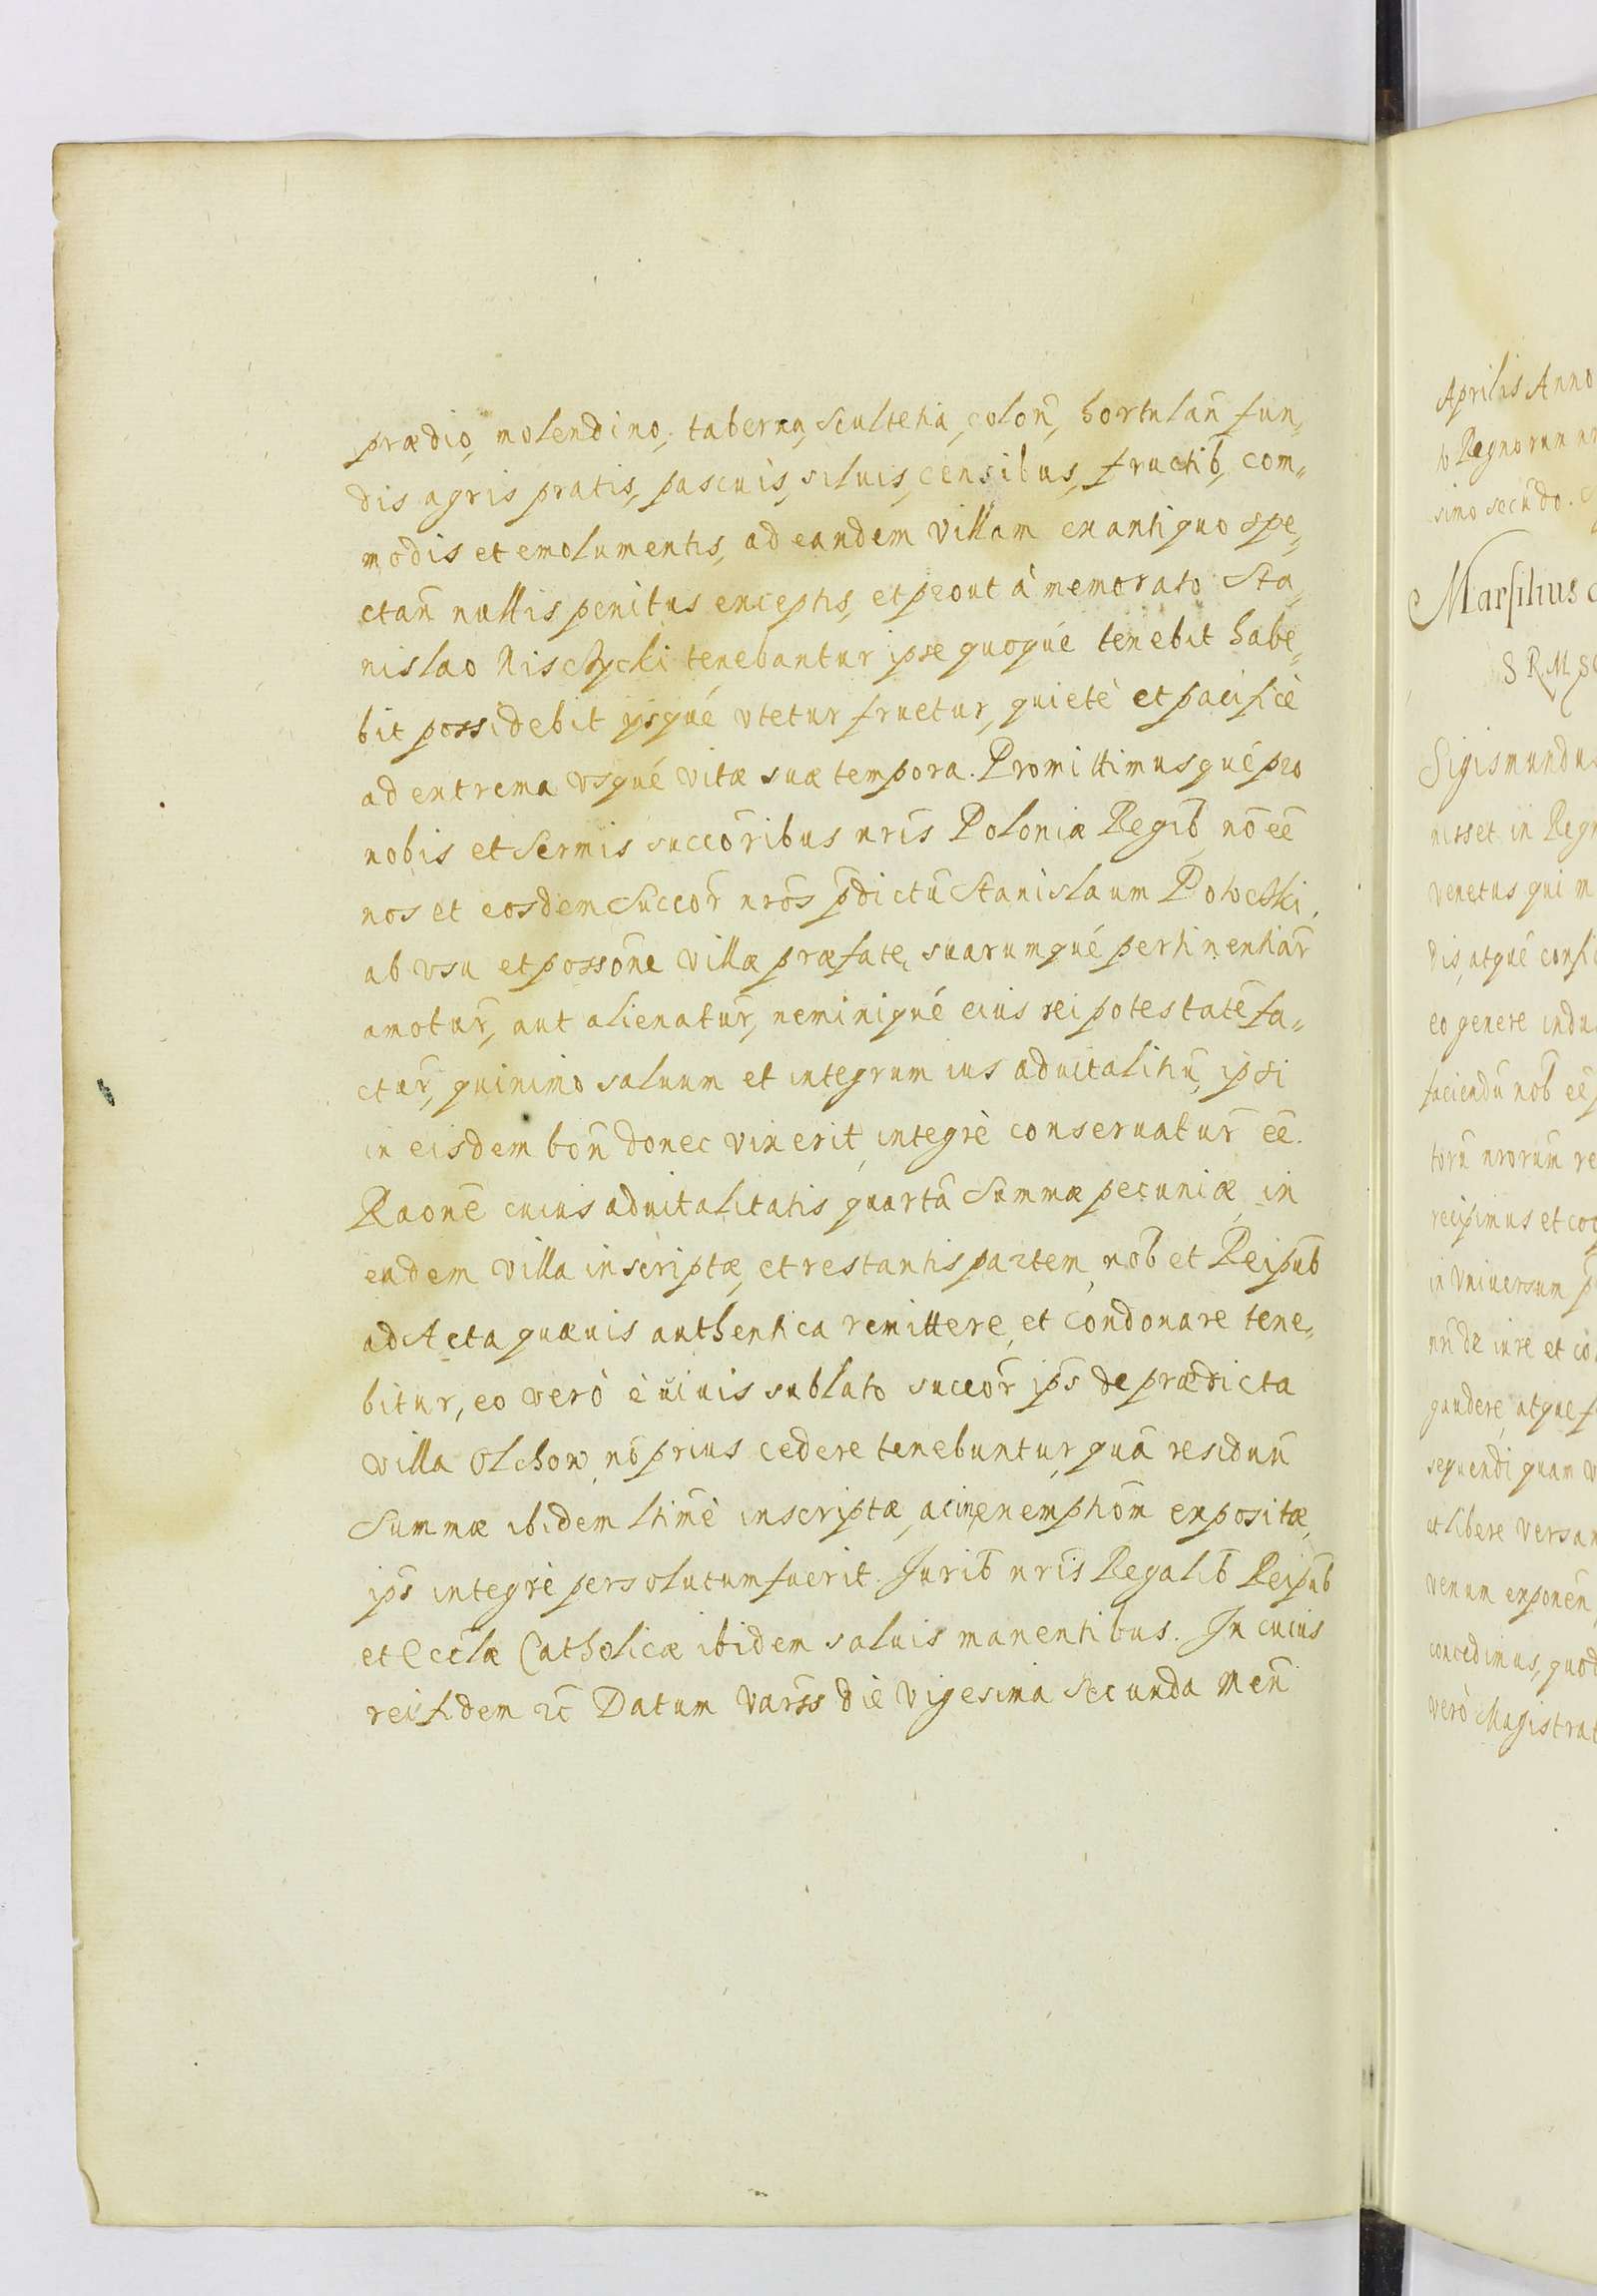 prædio, molendino, taberna, scultetia, colon̄, hortulan̄ fun„
dis agris pratis, pascuis, siluis, censibus, fructib̄, com„
modis et emolumentis, ad eandem villam ex antiquo spe„
ctan̄ nullis penitus exceptis, et prout à memorato Sta„
nislao Nisczycki tenebantur ipse quoqué tenebit habe„
bit possidebit ijsqué vtetur fruetur, quietè et pacificè
ad extrema vsqué vitæ suæ tempora. Promittimusqué pro
nobis et Serm̄is succōribus nrīs Poloniæ Regib̄ nō eē
nos et eosdem Succōr nrōs p̄dictū Stanislaum
ab vsu et possōne villæ præfatę, suarumqué pertinentiar̄
amotur̄, aut alienatur̄, neminiqué eius rei potestatē fa„
ctur̄, quinimo saluum et integrum ius aduitalitiū, ipsi
in eisdem bon̄ donec vixerit, integrè conseruatur̄ eē.
Raōne cuius aduitalitatis quartā Summæ pecuniæ, in
eadem villa inscriptæ, et restantis partem, nob̄ et Reipub̄
ad Acta quæuis authentica remittere, et condonare tene„
bitur, eo verò è viuis sublato succōr ips̄ de prædicta
villa Olchow, nō prius cedere tenebuntur, quā residuū
Summæ ibidem ltimè inscriptæ, ac in exemptiōn expositæ,
ips̄ integrè persolutum fuerit. Jurib̄ nrīs Regalib̄ Reipub̄
et Eccl̄æ Catholicæ ibidem saluis manentibus. In cuius
rei fidem ꝛc̄ Datum Varss̄ die Vigesima Secunda Men̄
Aprilis Anno
Regnorum
simo secūdo.
Marsilius
S R. M
Sigismundus
nisset in Regn
Venetus qui m
dis, atqué consi
eo genere indu
faciendū nob̄ eē
torū nrorum re
recipimus et coo
in vniuersum
de iure et
gaudere, atque f
sequendi quam v
et libere versan
venum exponen
concedimus, quod
verò Magistrat